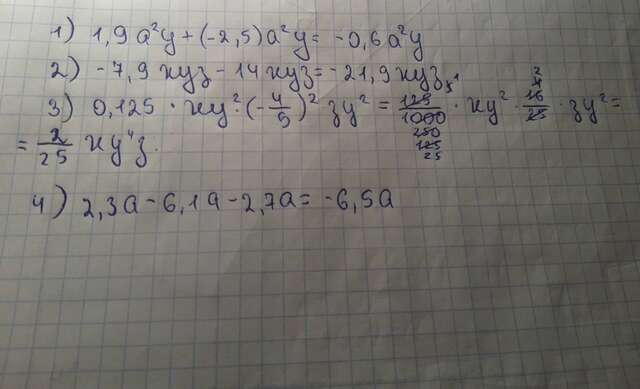 1) 1,9 a²y + (-2,5) a²y = -0,6 a²y
2) -7,9 xyz - 14 xyz = -21,9 xyz
3) 0,125 · xy² (-4/5)² zy² = 125/1000 · xy² · 16/25 · zy² =
= 2/25 xy⁴z.
4) 2,3a - 6,1a - 2,7a = -6,5a